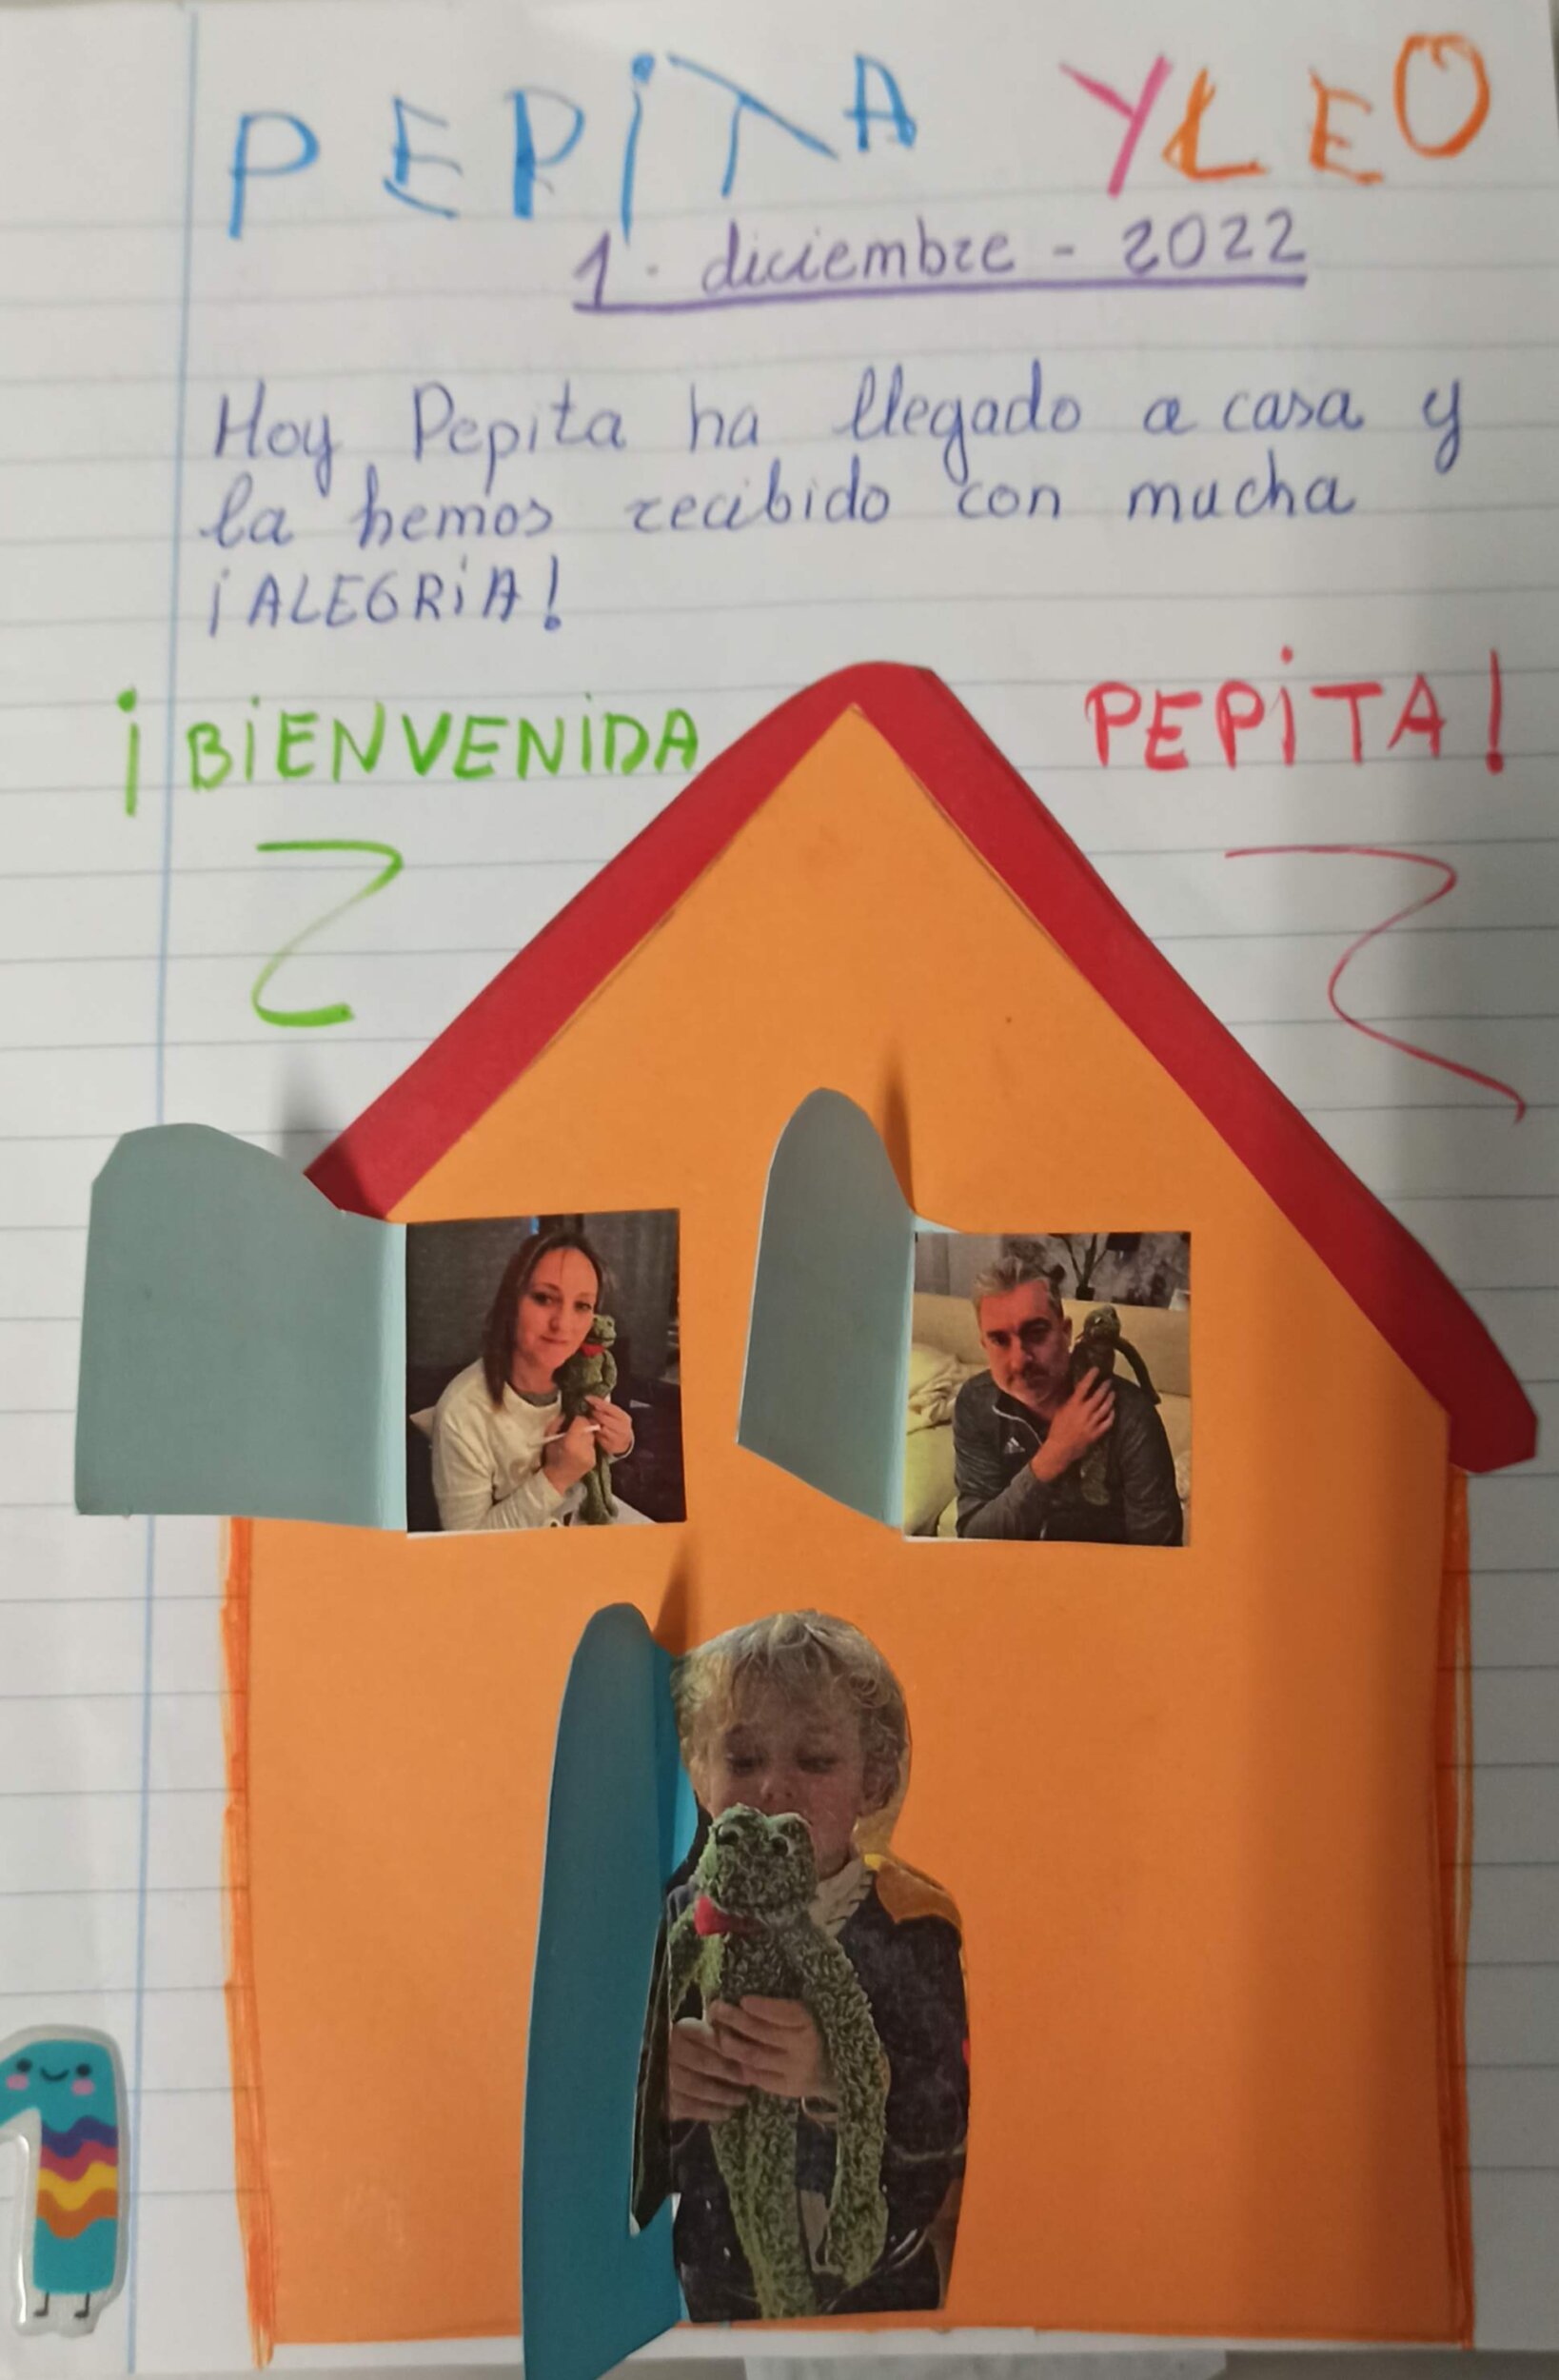 PEPITA Y LEO
1. diciembre - 2022
Hoy Pepita ha llegado a casa y
la hemos recibido con mucha
¡ALEGRÍA!
¡BIENVENIDA PEPITA!
1